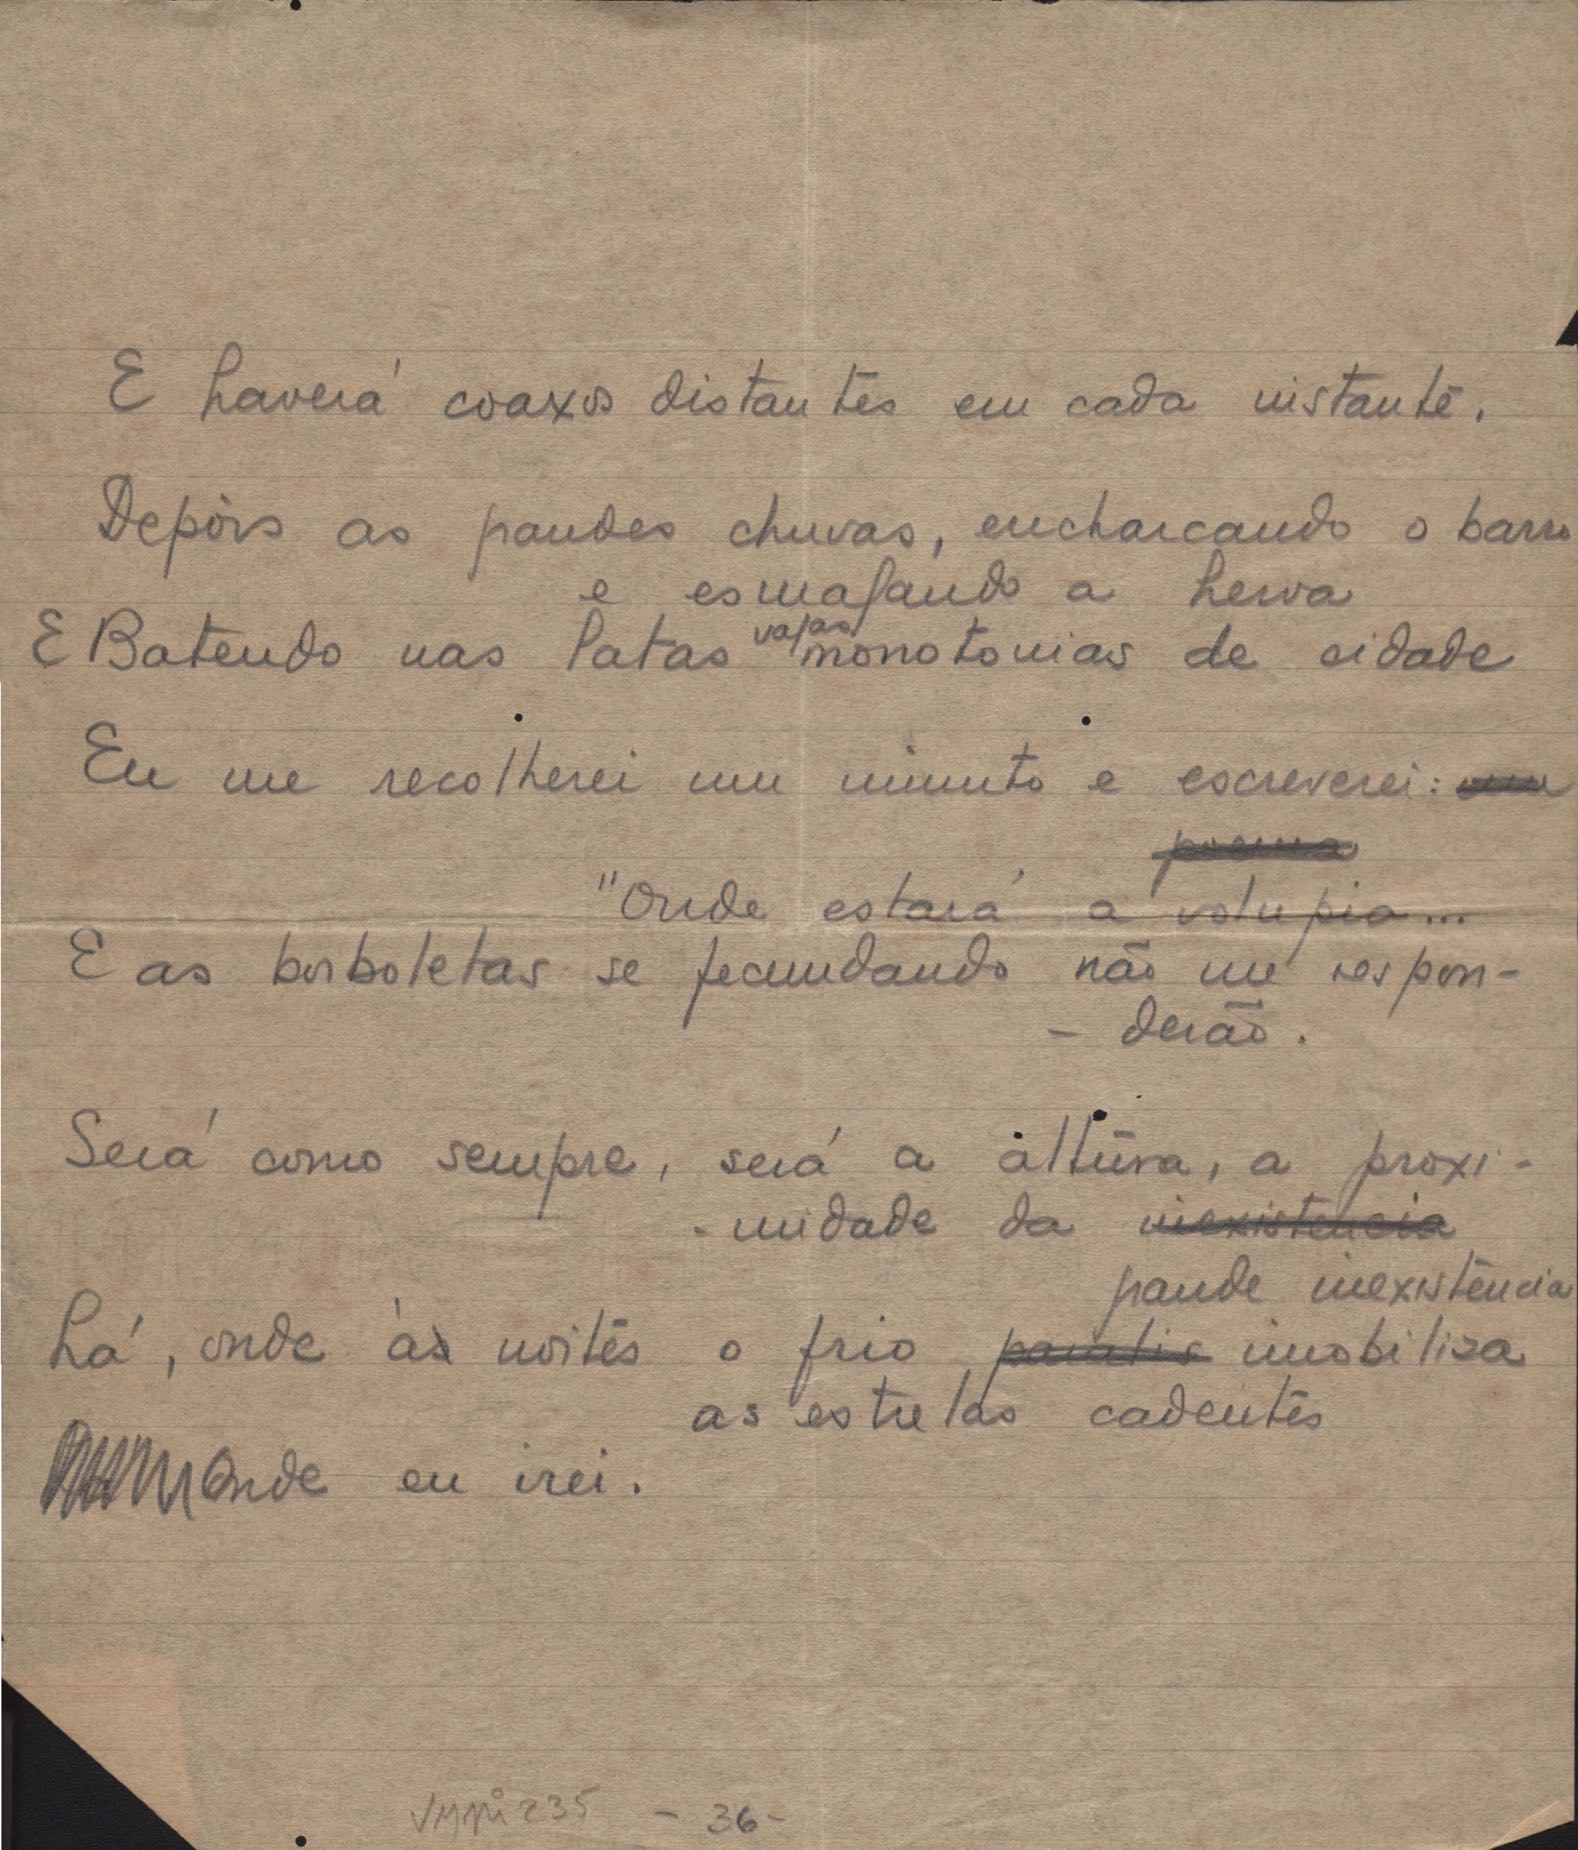 E haverá coaxos distantes em cada instante.
Depois as grandes chuvas, encharcando o barro
e esmagando a herva
E Batendo nas latas vagas monotonias de cidade
Eu me recolherei um minuto e escreverei: um
poema
"Onde estará a volupia...
E as borboletas se fecundando não me respon-
- derão.
Será como sempre, será a altura, a proxi-
- midade da inexistencia
grande inexistência
Lá, onde às noites o frio paralis imobiliza
as estrelas cadentes
Onde eu irei.
- 36 -